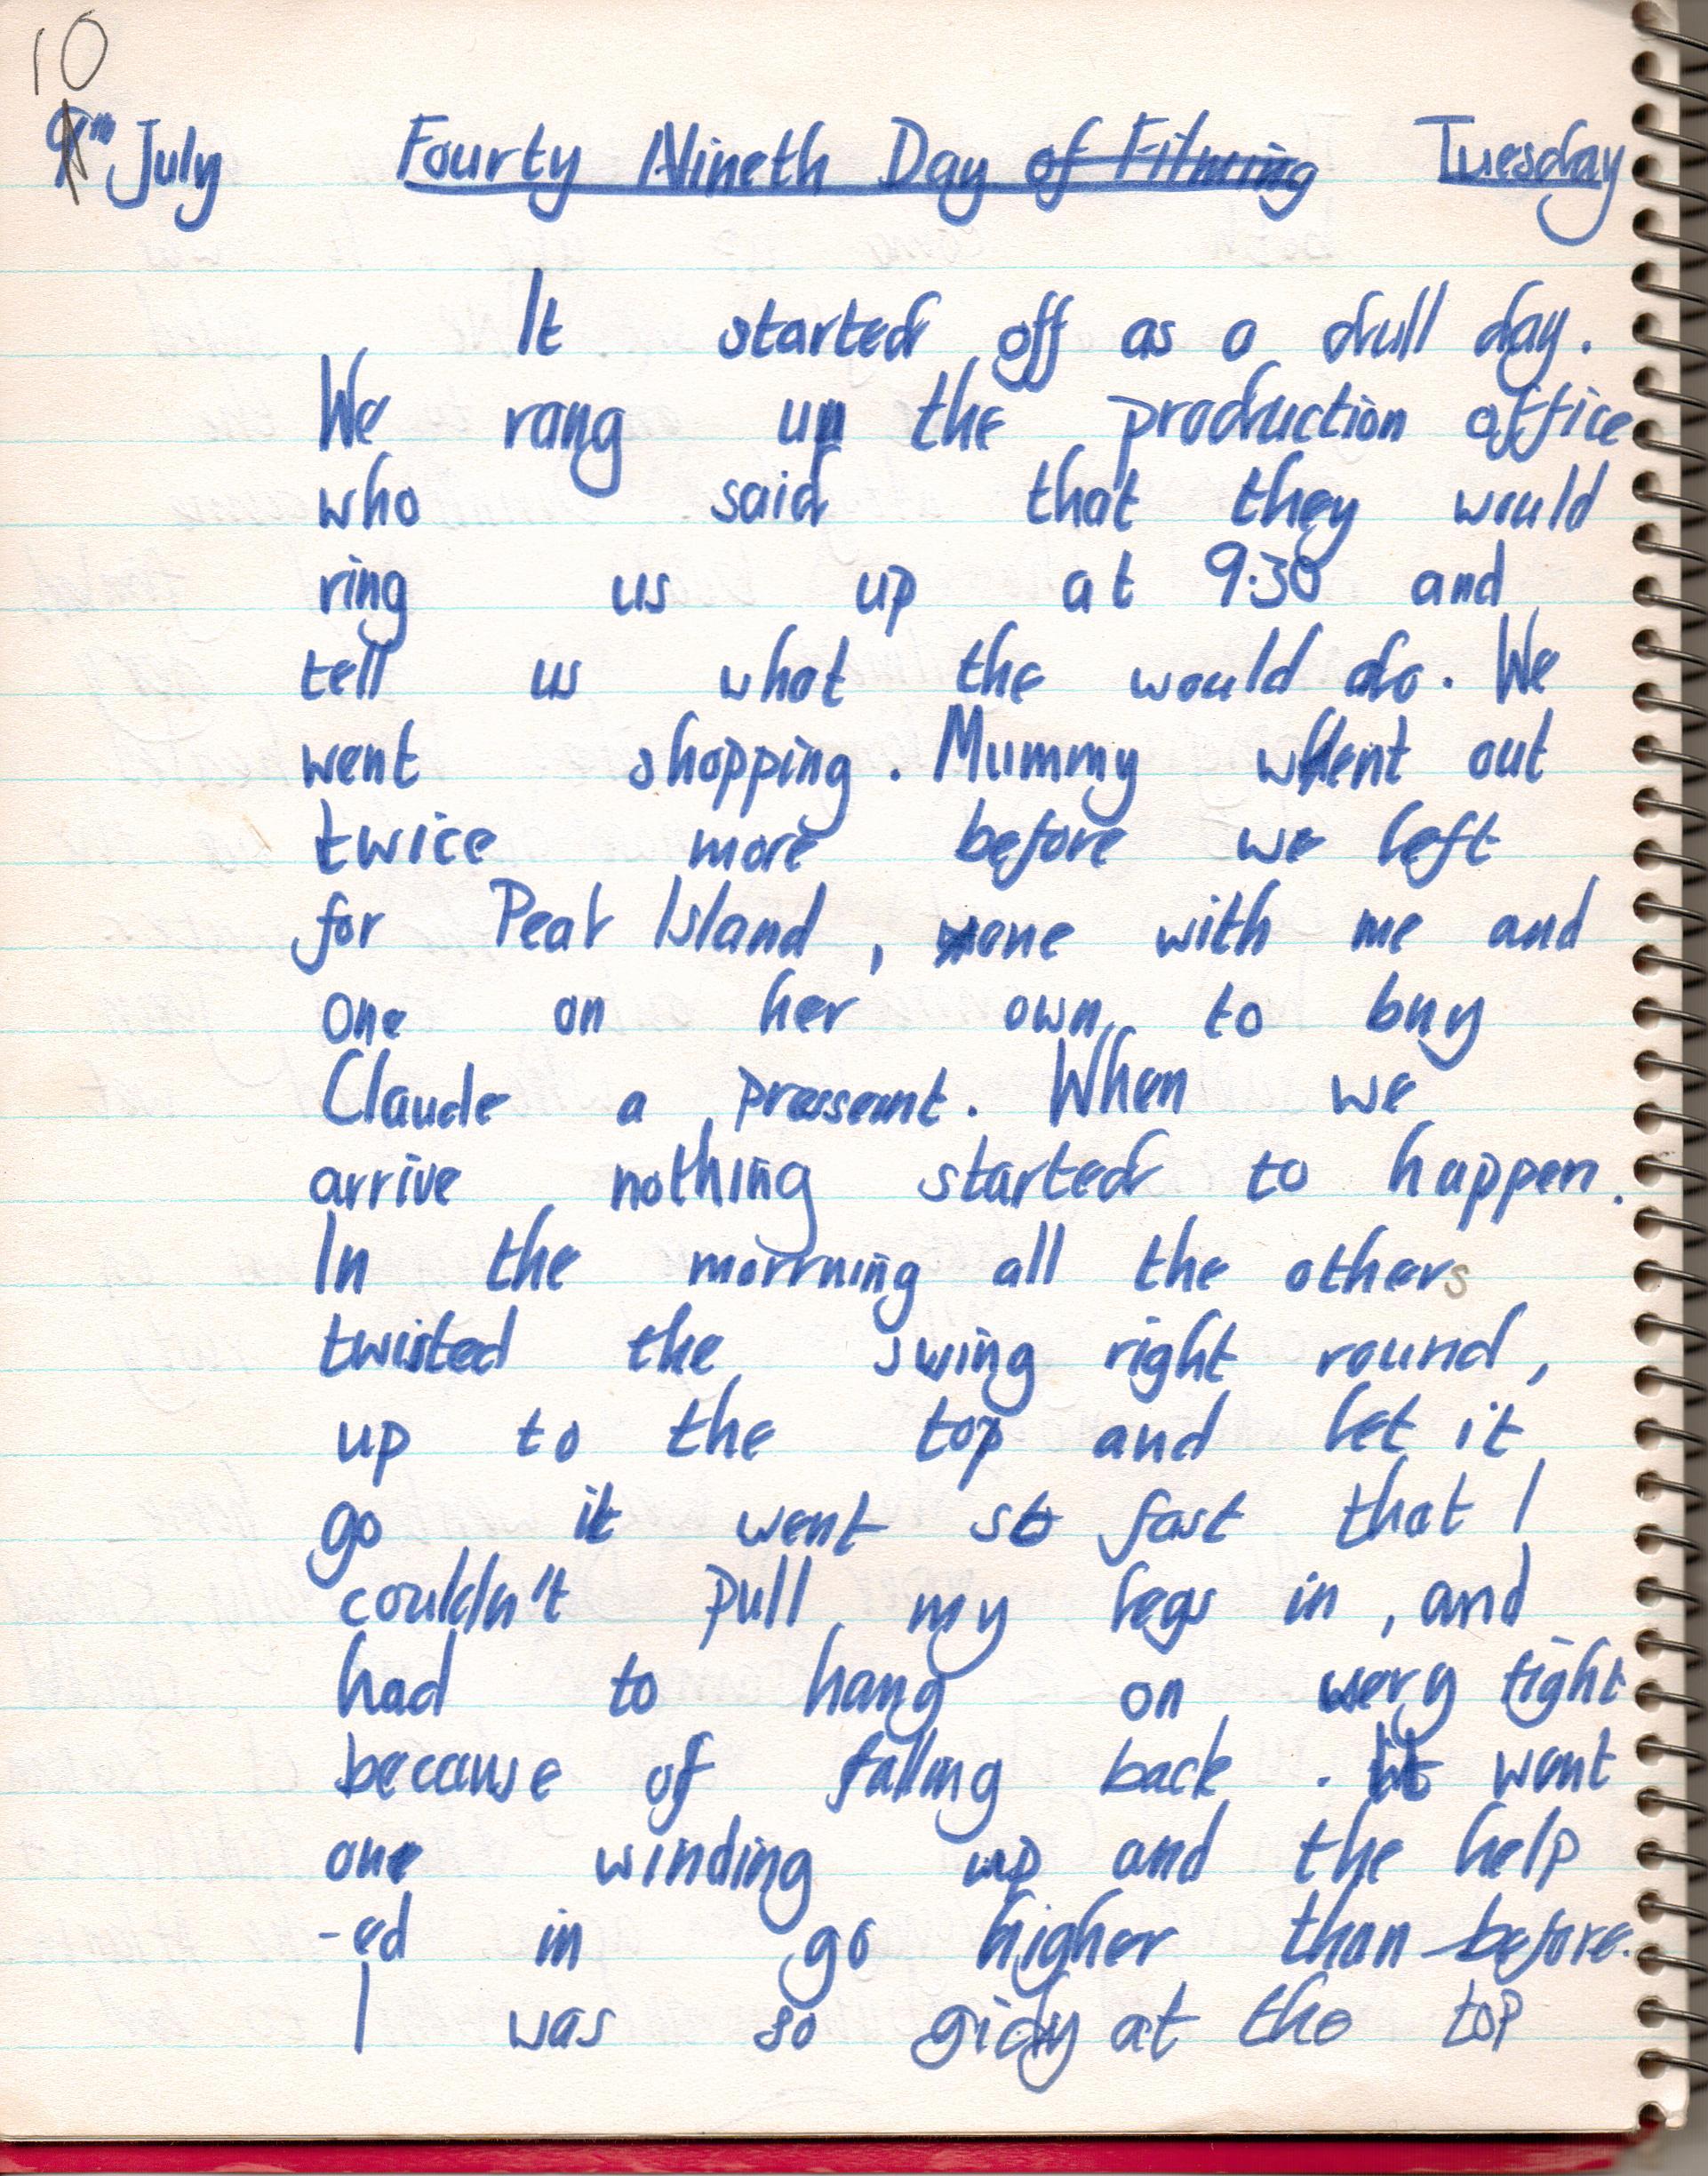 10
9th July Fourty Nineth Day of Filming Tuesday
It started off as a dull day.
We rang up the production office
who said that they would
ring us up at 9.30 and
tell us what the would do. We
went shopping. Mummy went out
twice more before we left
for Peat Island, one with me and
one on her own, to buy
Claude a pressent. When we
arrive nothing started to happen.
In the morrning all the others
twisted the swing right round,
up to the top and let it
go it went so fast that I
couldn't pull my legs in, and
had to hang on very tight
because of falling back. It went
one winding up and the help
-ed in go higher than before.
I was so gidy at the top